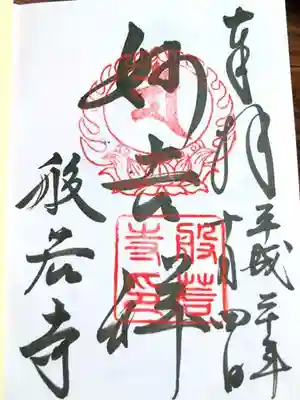 奉拝 平成二十年十月四日
妙吉祥
般若寺
般若寺印